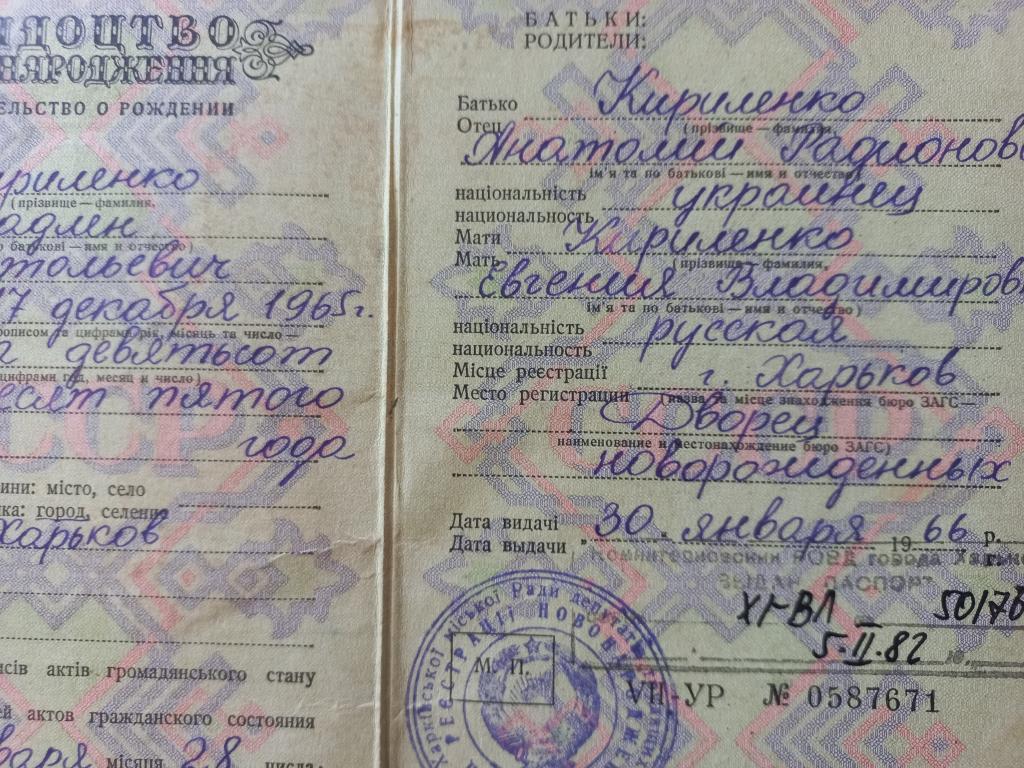 ДОЦТВО
НАРОДЖЕННЯ
ЕЛЬСТВО О РОЖДЕНИИ
ириленко
(прізвище — фамилия,
адлен
о батькові — имя и отчество)
тольевич
17 декабря 1965 г.
прописом та цифрами рік, місяць та число —
девятьсот
цифрами год, месяц и число)
есят пятого
года
СССР
ини: місто, село
ка: город, селение
Харьков
исів актів громадянського стану
ей актов гражданского состояния
варя місяця 28 числа:
БАТЬКИ:
РОДИТЕЛИ:
Батько Кириленко
Отец (прізвище — фамилия,
Анатолий Радионов
ім'я та по батькові — имя и отчество)
національність украинец
национальность
Мати Кириленко
Мать (прізвище — фамилия,
Евгения Владимиров
ім'я та по батькові — имя и отчество)
національність русская
национальность
Місце реєстрації г. Харьков
Место регистрации (назва та місце знаходження бюро ЗАГС —
Дворец
наименование и местонахождение бюро ЗАГС)
новорожденных
Дата видачі 30 января 1966 р.
Дата выдачи г.
Коминтерновский РОВД города Харько
ВЫДАН ПАСПОРТ
XI-ВЛ 50176
5.II.82
М. П.
Харківської міської Ради депутатів
РЕЄСТРАЦІЇ НОВОН
VII-УР № 0587671